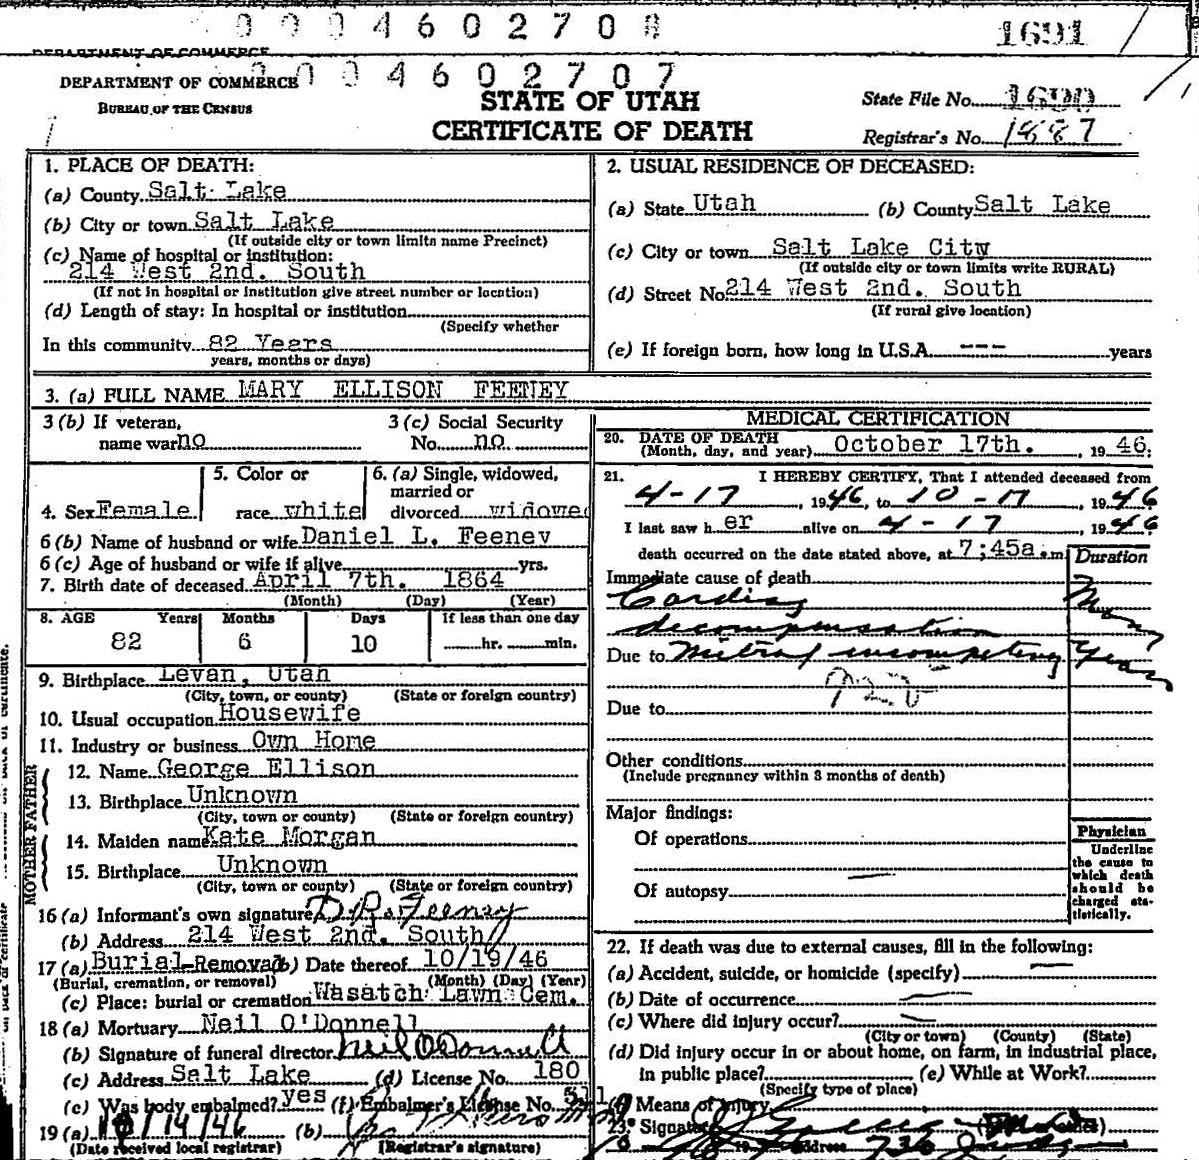 0004602708
1691
DEPARTMENT OF COMMERCE
DEPARTMENT OF COMMERCE
0004602707
BUREAU OF THE CENSUS
STATE OF UTAH
CERTIFICATE OF DEATH
State File No. 1690
Registrar's No. 1887
1. PLACE OF DEATH:
(a) County Salt Lake
(b) City or town Salt Lake
(If outside city or town limits name Precinct)
(c) Name of hospital or institution:
214 West 2nd. South
(If not in hospital or institution give street number or location)
(d) Length of stay: In hospital or institution
(Specify whether
In this community 82 Years
years, months or days)
2. USUAL RESIDENCE OF DECEASED:
(a) State Utah (b) County Salt Lake
(c) City or town Salt Lake City
(If outside city or town limits write RURAL)
(d) Street No. 214 West 2nd. South
(If rural give location)
(e) If foreign born, how long in U.S.A. --- years
3. (a) FULL NAME MARY ELLISON FEENEY
3 (b) If veteran, name war no
3 (c) Social Security No. no
4. Sex Female
5. Color or race white
6. (a) Single, widowed, married or divorced widowed
6 (b) Name of husband or wife Daniel L. Feeney
6 (c) Age of husband or wife if alive yrs.
7. Birth date of deceased April 7th. 1864
(Month) (Day) (Year)
8. AGE Years Months Days If less than one day
82 6 10 hr. min.
9. Birthplace Levan, Utah
(City, town, or county) (State or foreign country)
10. Usual occupation Housewife
11. Industry or business Own Home
FATHER
12. Name George Ellison
13. Birthplace Unknown
(City, town or county) (State or foreign country)
MOTHER
14. Maiden name Kate Morgan
15. Birthplace Unknown
(City, town or county) (State or foreign country)
16 (a) Informant's own signature D. R. Feeney
(b) Address 214 West 2nd. South
17 (a) Burial-Removal (b) Date thereof 10/19/46
(Burial, cremation, or removal) (Month) (Day) (Year)
(c) Place: burial or cremation Wasatch Lawn Cem.
18 (a) Mortuary Neil O'Donnell
(b) Signature of funeral director Neil O'Donnell
(c) Address Salt Lake (d) License No. 180
(e) Was body embalmed? yes (f) Embalmer's License No. 511
19 (a) 10/19/46 (b)
(Date received local registrar) (Registrar's signature)
MEDICAL CERTIFICATION
20. DATE OF DEATH
(Month, day, and year) October 17th. , 19 46.
21. I HEREBY CERTIFY, That I attended deceased from
4-17, 1946, to 10-17, 1946
I last saw h er alive on 4-17, 1946
death occurred on the date stated above, at 7;45a.m.
Duration
Immediate cause of death
Cardiac
decompensation
Many
Due to Mitral incompetency Years
Due to
Other conditions
(Include pregnancy within 3 months of death)
Major findings:
Of operations
Of autopsy
Physician
Underline
the cause to
which death
should be
charged sta-
tistically.
22. If death was due to external causes, fill in the following:
(a) Accident, suicide, or homicide (specify)
(b) Date of occurrence
(c) Where did injury occur?
(City or town) (County) (State)
(d) Did injury occur in or about home, on farm, in industrial place,
in public place? (e) While at Work?
(Specify type of place)
(f) Means of Injury
23. Signature
Address 736